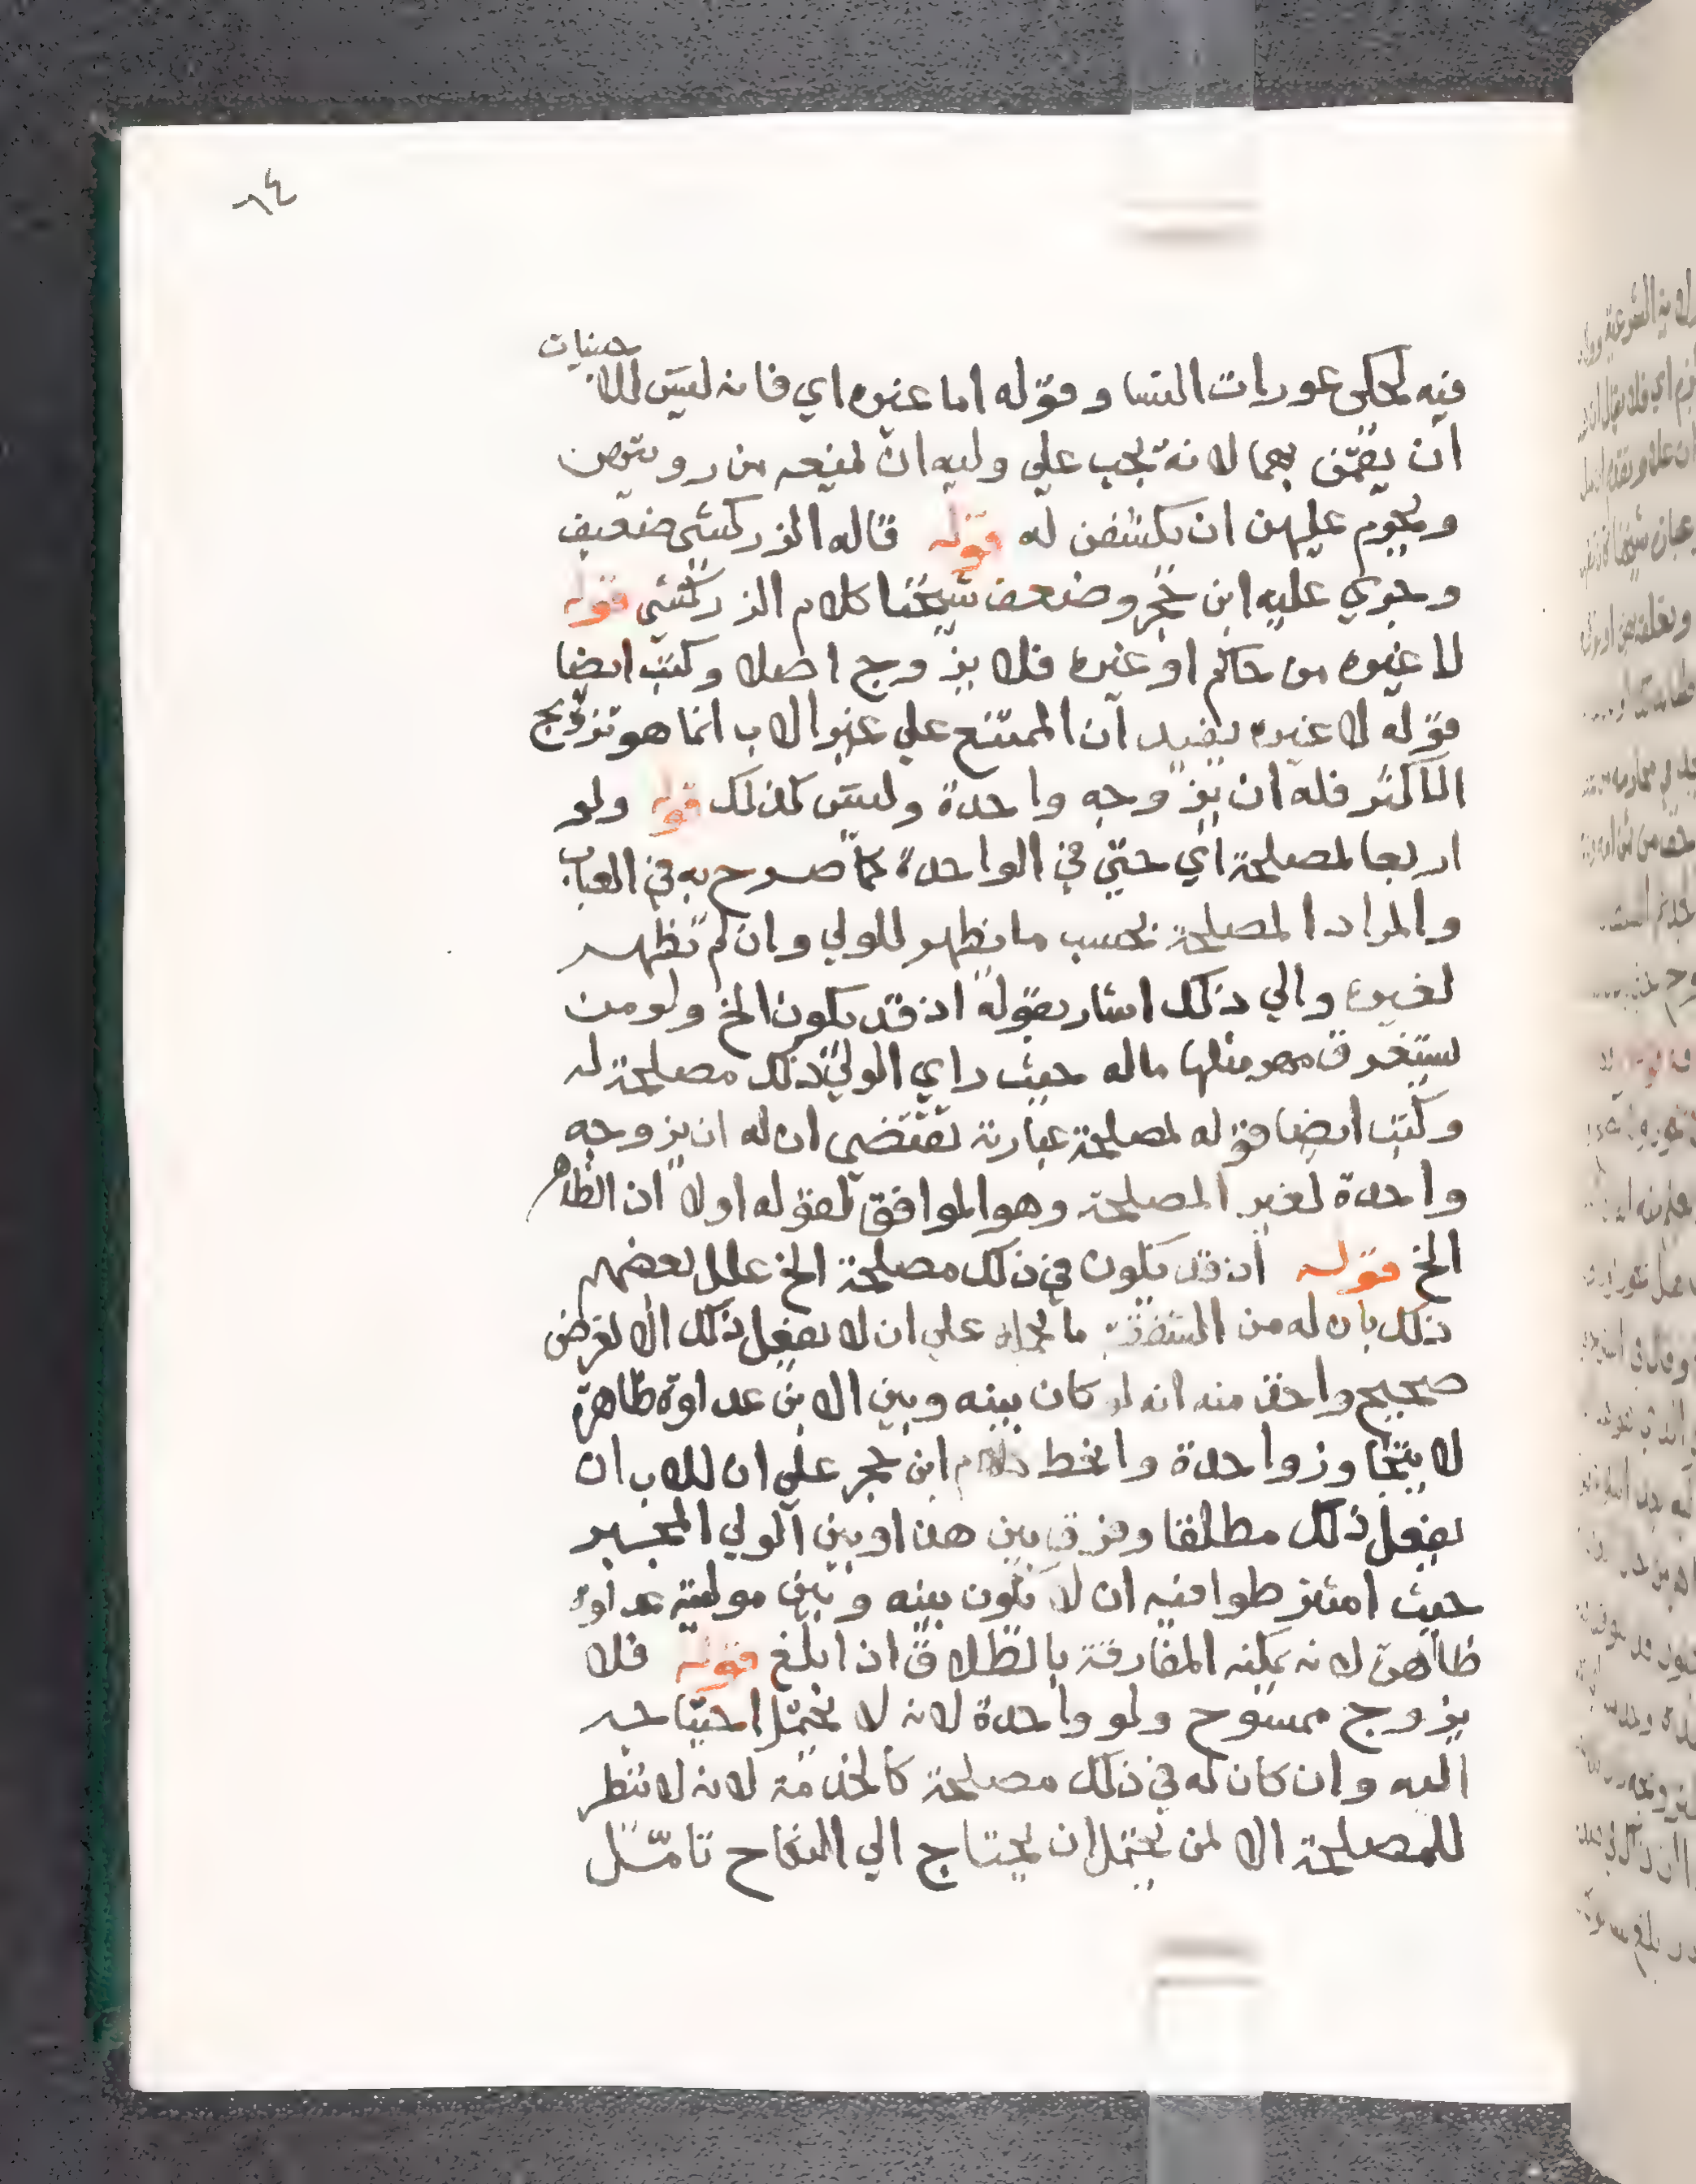 ٦٤
فيه لحكى عورات النسا وقوله اما غيره اي فانه ليس للاجنبيات
ان يقمن بهما لانه يجب علي وليه ان يمنعه من رويتهن
ويحرم عليهن ان يكشفن له قوله قاله الزركشي ضعيف
وجري عليه ابن حجر وضعف شيخنا كلام الزركشي قوله
لا غيره من حاكم او غيره فلا يزوج اصلا وكتب ايضا
قوله لا غيره يفيد ان الممتنع علي غير الاب انما هو تزويج
الاكثر فله ان يزوجه واحدة وليس كذلك قوله ولو
اربعا لمصلحة اي حتي في الواحدة كما صرح به في العباب
والمراد المصلحة بحسب ما يظهر للولي وان لم تظهر
لغيره والي ذلك اشار بقوله اذ قد يكون الخ ولو من
يستغرق مهر مثلها ماله حيث راي الولي ذلك مصلحة له
وكتب ايضا قوله لمصلحة عبارته تقتضي ان له ان يزوجه
واحدة لغير المصلحة وهو الموافق لقوله اولا اذ الظاهر
الخ قوله اذ قد يكون في ذلك مصلحة الخ علل بعضهم
ذلك بان له من الشفقة ما يحمله علي ان لا يفعل ذلك الا لغرض
صحيح واخذ منه انه لو كان بينه وبين الابن عداوة ظاهرة
لا يتجاوز واحدة وانحط كلام ابن حجر علي ان للاب ان
يفعل ذلك مطلقا وفرق بين هذا وبين الولي المجبر
حيث اشترطوا فيه ان لا يكون بينه وبين موليته عداوة
ظاهرة لانه يمكنه المفارقة بالطلاق اذا بلغ قوله فلا
يزوج ممسوح ولو واحدة لانه لا يحتمل احتياجه
اليه وان كان له في ذلك مصلحة كالخدمة لانه لا ننظر
للمصلحة الا لمن يحتمل ان يحتاج الي النكاح تامل